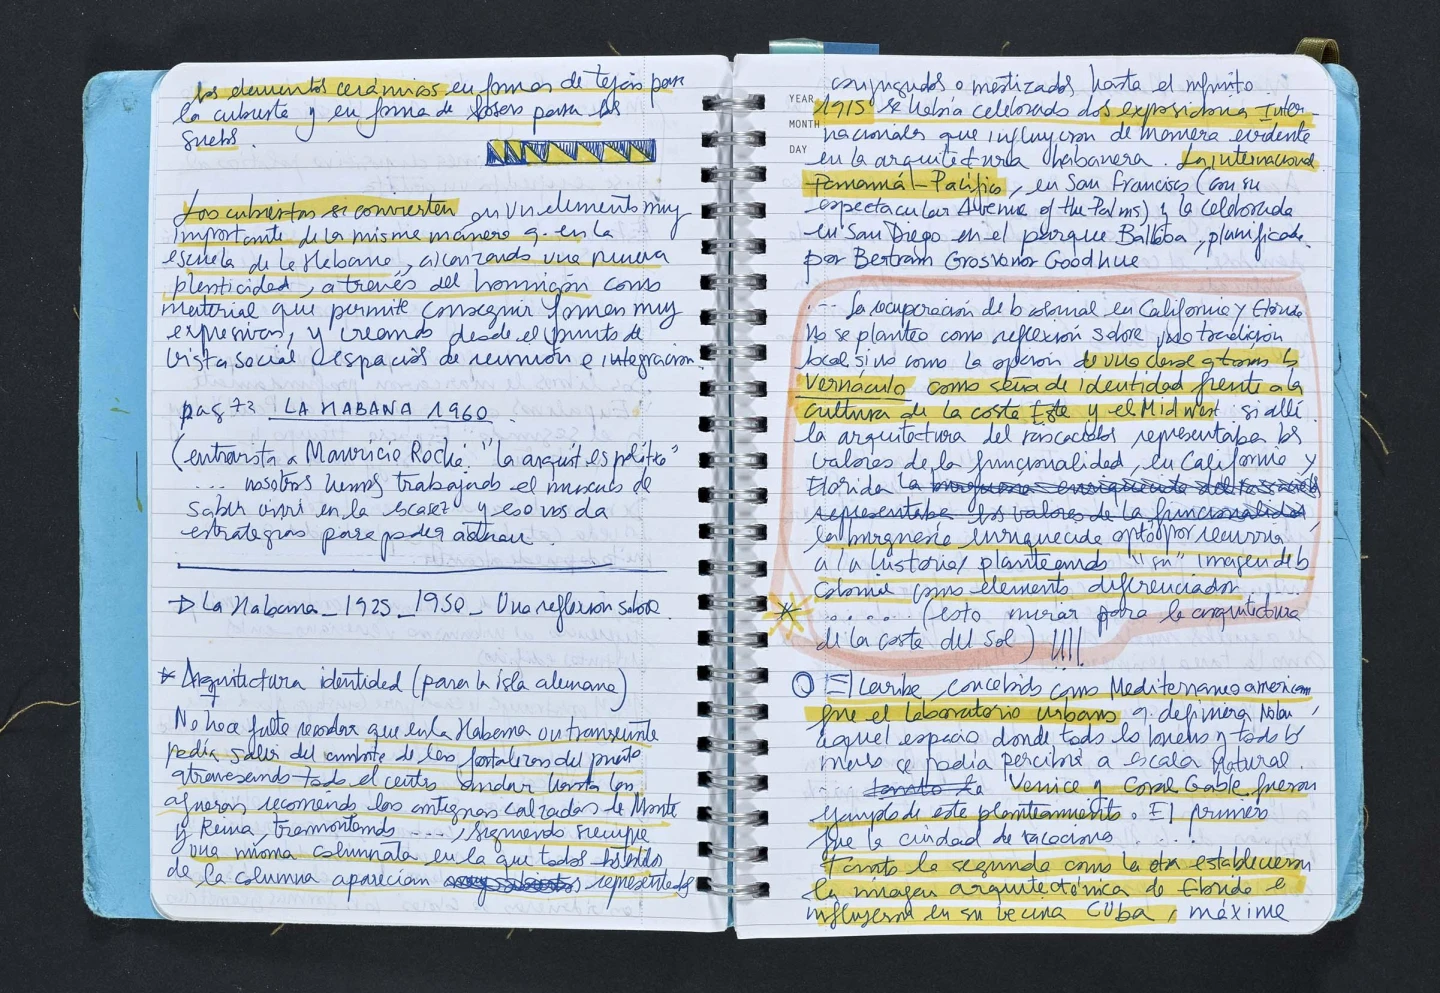 los elementos cerámicos en formas de tejas para
la cubierta y en forma de losas para los
suelos.
Las cubiertas se convierten en un elemento muy
importante de la misma manera q. en la
escuela de la Habana, alcanzando una nueva
plasticidad, a través del hormigón como
material que permite conseguir formas muy
expresivas, y creando desde el punto de
vista social espacios de reunión e integración.
pag 72 LA HABANA 1960
(entrevista a Mauricio Rocha: "la arquit. es política"
... nosotros hemos trabajado el músculo de
saber vivir en la escasez y eso nos da
estrategias para poder
→ La Habana - 1925 - 1950 - Una reflexión sobre
* Arquitectura identidad (para la isla alemana)
No hace falta recordar que en la Habana un transeunte
podía salir del ambito de las fortalezas del puerto
atravesando todo el centro andar hasta las
afueras recorriendo las antiguas calzadas de Monte
y Reina, tramontando ...., siguiendo siempre
una misma columnata en la que todos los estilos
de la columna aparecían representados
conjugados o mestizados hasta el infinito
YEAR
1915 se había celebrado dos exposiciones Inter-
MONTH
nacionales que influyeron de manera evidente
DAY
en la arquitectura habanera. La internacional
Panamá-Pacífico, en San Francisco (con su
espectacular Avenue of the Palms) y la celebrada
en San Diego en el parque Balboa, planificada
por Bertram Grosvenor Goodhue
.... La recuperación de lo colonial en California y Florida
No se planteó como reflexión sobre una tradición
local sino como la opción de una clase q toma lo
vernáculo como seña de identidad frente a la
cultura de la coste Este y el Midwest. si allí
la arquitectura del rascacielos representaba los
valores de la funcionalidad, en California y
Florida la
representaba los valores de la funcionalidad,
la burguesía enriquecida optó por recurrir
a la historia, planteando "su" imagen de lo
colonial como elemento diferenciador.
...... (esto mirar para la arquitectura
de la coste del sol) !!!!
El Caribe, concebido como Mediterraneo americano
fue el laboratorio urbano q. definiera Nolen,
aquel espacio donde todo lo bueno y todo lo
malo se podía percibir a escala natural.
Venice y Coral Gable fueron
ejemplo de este planteamiento. El primero
fue la ciudad de vacaciones ......
Tanto la segunda como la otra establecieron
la imagen arquitectónica de Florida e
influyeron en su vecina Cuba, máxime